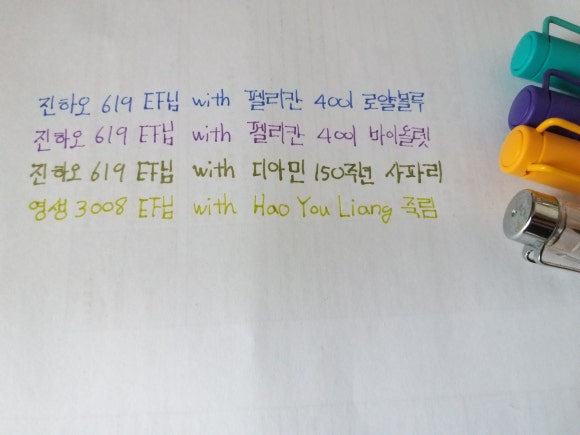 진하오 619 EF닙 with 펠리칸 4001 로얄블루
진하오 619 EF닙 with 펠리칸 4001 바이올렛
진하오 619 EF닙 with 디아민 150주년 사파리
영생 3008 EF닙 with Hao You Liang 죽림